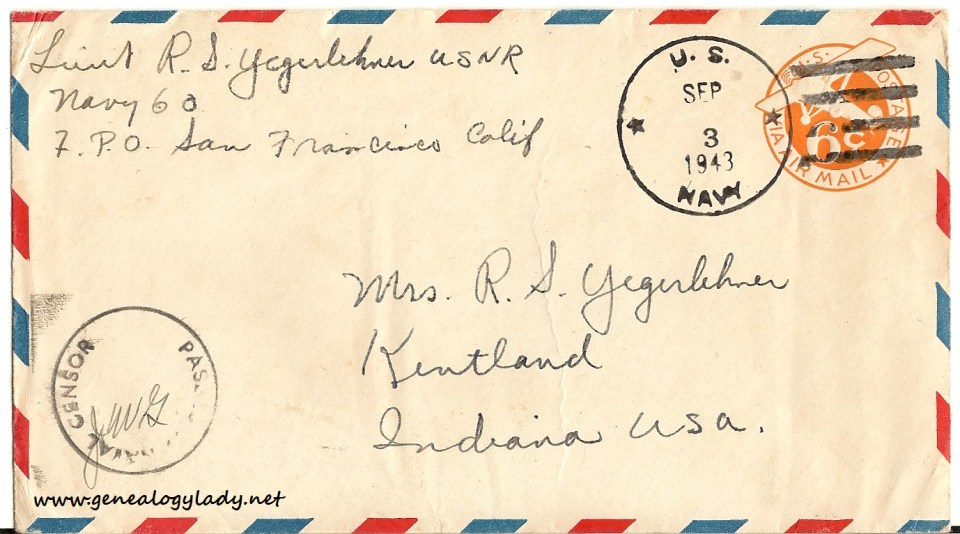 Lieut R. S. Yegerlehner USNR
Navy 60
F.P.O. San Francisco Calif
U.S.
SEP
3
1943
NAVY
U.S. POSTAGE
6c
VIA AIR MAIL
Mrs. R. S. Yegerlehner
Kentland
Indiana USA.
PAS
NAVAL CENSOR
www.genealogylady.net